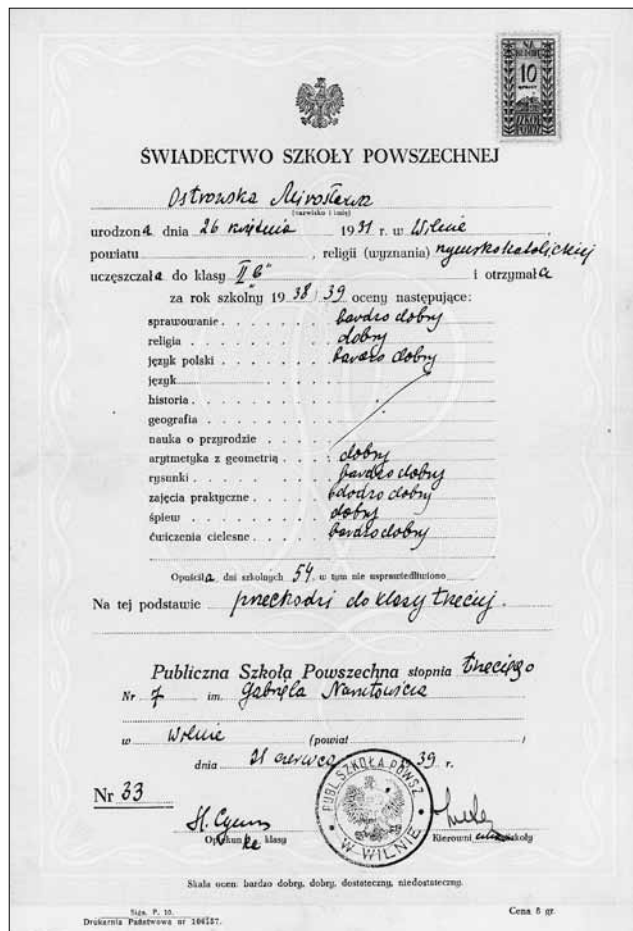 NA
BUDOWĘ
10
GROSZY
SZKÓŁ
POWSZ
ŚWIADECTWO SZKOŁY POWSZECHNEJ
Ostrowska Mirosława
(nazwisko i imię)
urodzona dnia 26 kwietnia 1931 r. w Wilnie,
powiatu , religii (wyznania) rzymskokatolickiej
uczęszczała do klasy II "b" i otrzymała
za rok szkolny 1938/39 oceny następujące:
sprawowanie . . . . . . . bardzo dobry
religia . . . . . . . dobry
język polski . . . . . . . bardzo dobry
język . . . . . . .
historia . . . . . . .
geografia . . . . . . .
nauka o przyrodzie . . . .
arytmetyka z geometrią . . . . dobry
rysunki . . . . . . . bardzo dobry
zajęcia praktyczne . . . . . dobry
śpiew . . . . . . . dobry
ćwiczenia cielesne . . . . . bardzo dobry
Opuściła dni szkolnych 54, w tym nie usprawiedliwiono
Na tej podstawie przechodzi do klasy trzeciej.
Publiczna Szkoła Powszechna stopnia trzeciego
Nr 7 im. Gabriela Narutowicza
w Wilnie (powiat )
dnia 21 czerwca 1939 r.
PUBL. SZKOŁA POWSZ.
W WILNIE
Nr 33
H.
Opiekunka klasy
Kierowni szkoły
Skala ocen: bardzo dobry, dobry, dostateczny, niedostateczny.
Sigs. P. 10.
Drukarnia Państwowa nr 106157.
Cena 8 gr.